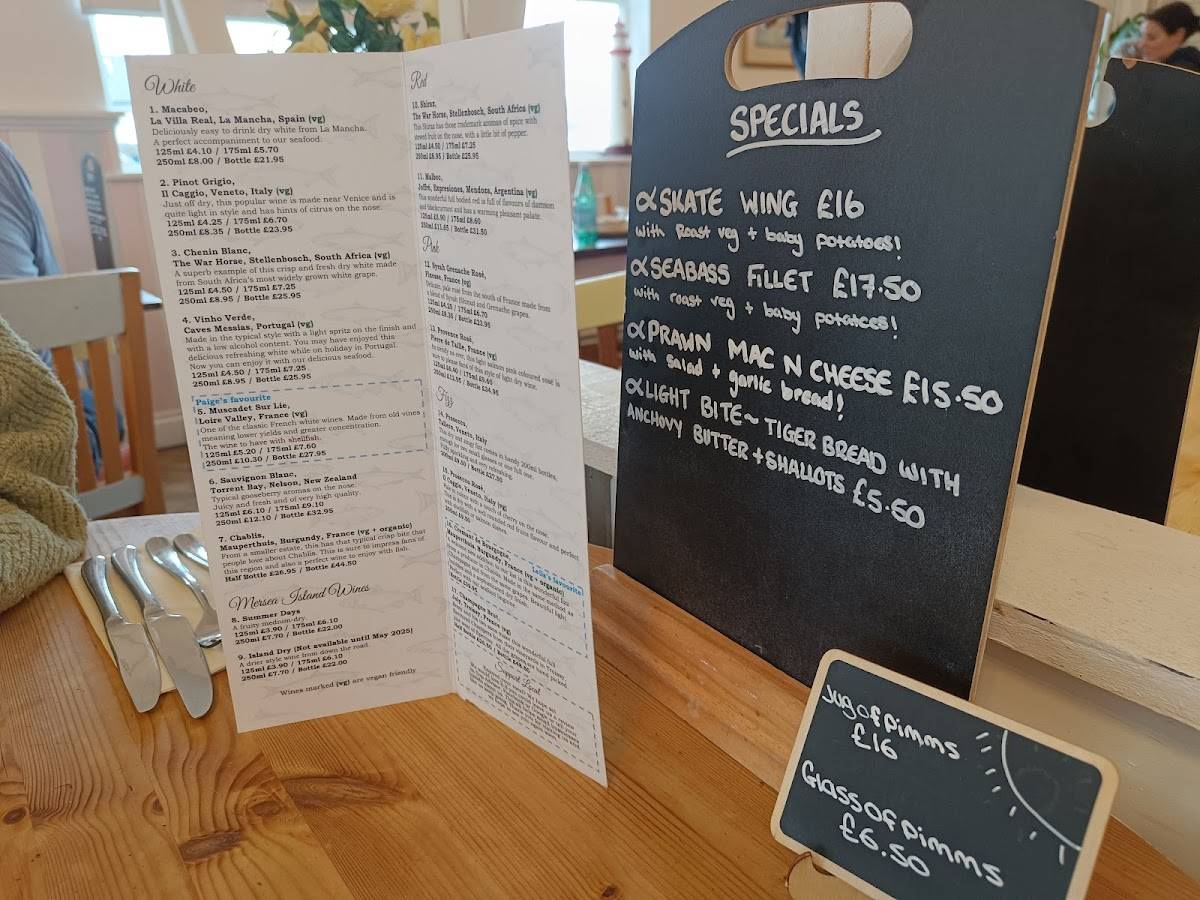 White
1. Macabeo,
La Villa Real, La Mancha, Spain (vg)
Deliciously easy to drink dry white from La Mancha.
A perfect accompaniment to our seafood.
125ml £4.10 / 175ml £5.70
250ml £8.00 / Bottle £21.95
2. Pinot Grigio,
Il Caggio, Veneto, Italy (vg)
Just off dry, this popular wine is made near Venice and is
quite light in style and has hints of citrus on the nose.
125ml £4.25 / 175ml £6.70
250ml £8.35 / Bottle £23.95
3. Chenin Blanc,
The War Horse, Stellenbosch, South Africa (vg)
A superb example of this crisp and fresh dry white made
from South Africa's most widely grown white grape.
125ml £4.50 / 175ml £7.25
250ml £8.95 / Bottle £25.95
4. Vinho Verde,
Caves Messias, Portugal (vg)
Made in the typical style with a light spritz on the finish and
with a low alcohol content. You may have enjoyed this
delicious refreshing white while on holiday in Portugal.
Now you can enjoy it with our delicious seafood.
125ml £4.50 / 175ml £7.25
250ml £8.95 / Bottle £25.95
Paige's favourite
5. Muscadet Sur Lie,
Loire Valley, France (vg)
One of the classic French white wines. Made from old vines
meaning lower yields and greater concentration.
The wine to have with shellfish.
125ml £5.20 / 175ml £7.60
250ml £10.30 / Bottle £27.95
6. Sauvignon Blanc,
Torrent Bay, Nelson, New Zealand
Typical gooseberry aromas on the nose.
Juicy and fresh and of very high quality.
125ml £6.10 / 175ml £9.10
250ml £12.10 / Bottle £32.95
7. Chablis,
Mauperthuis, Burgundy, France (vg + organic)
From a smaller estate, this has that typical crisp bite that
people love about Chablis. This is sure to impress fans of
this region and also a perfect wine to enjoy with fish.
Half Bottle £26.95 / Bottle £44.50
Mersea Island Wines
8. Summer Days
A fruity medium-dry
125ml £3.90 / 175ml £6.10
250ml £7.70 / Bottle £22.00
9. Island Dry (Not available until May 2025)
A drier style wine from down the road
125ml £3.90 / 175ml £6.10
250ml £7.70 / Bottle £22.00
Wines marked (vg) are vegan friendly
Red
10. Shiraz,
The War Horse, Stellenbosch, South Africa (vg)
This Shiraz has those trademark aromas of spice with
stewed fruit on the nose, with a little bit of pepper.
125ml £4.50 / 175ml £7.25
250ml £8.95 / Bottle £25.95
11. Malbec,
Joffré, Expresiones, Mendoza, Argentina (vg)
This wonderful full bodied red is full of flavours of damson
and blackcurrant and has a warming pleasant palate.
125ml £5.90 / 175ml £8.60
250ml £11.65 / Bottle £31.50
Pink
12. Syrah Grenache Rosé,
France (vg)
Delicate, pale rosé from the south of France made from
a blend of Syrah (Shiraz) and Grenache grapes.
125ml £4.25 / 175ml £6.70
250ml £8.35 / Bottle £23.95
13. Provence Rosé,
France (vg)
Fizz
14. Prosecco,
Veneto, Italy
15. Prosecco Rosé,
Il Caggio, Veneto, Italy (vg)
Leila's favourite
16. Cremant de Bourgogne,
Mauperthuis, Burgundy, France (vg + organic)
17. Champagne Brut,
Support Local
SPECIALS
SKATE WING £16
with Roast veg + baby potatoes!
SEABASS FILLET £17.50
with roast veg + baby potatoes!
PRAWN MAC N CHEESE £15.50
with salad + garlic bread!
LIGHT BITE~ TIGER BREAD WITH
ANCHOVY BUTTER + SHALLOTS £5.60
Jug of pimms
£16
Glass of pimms
£6.50